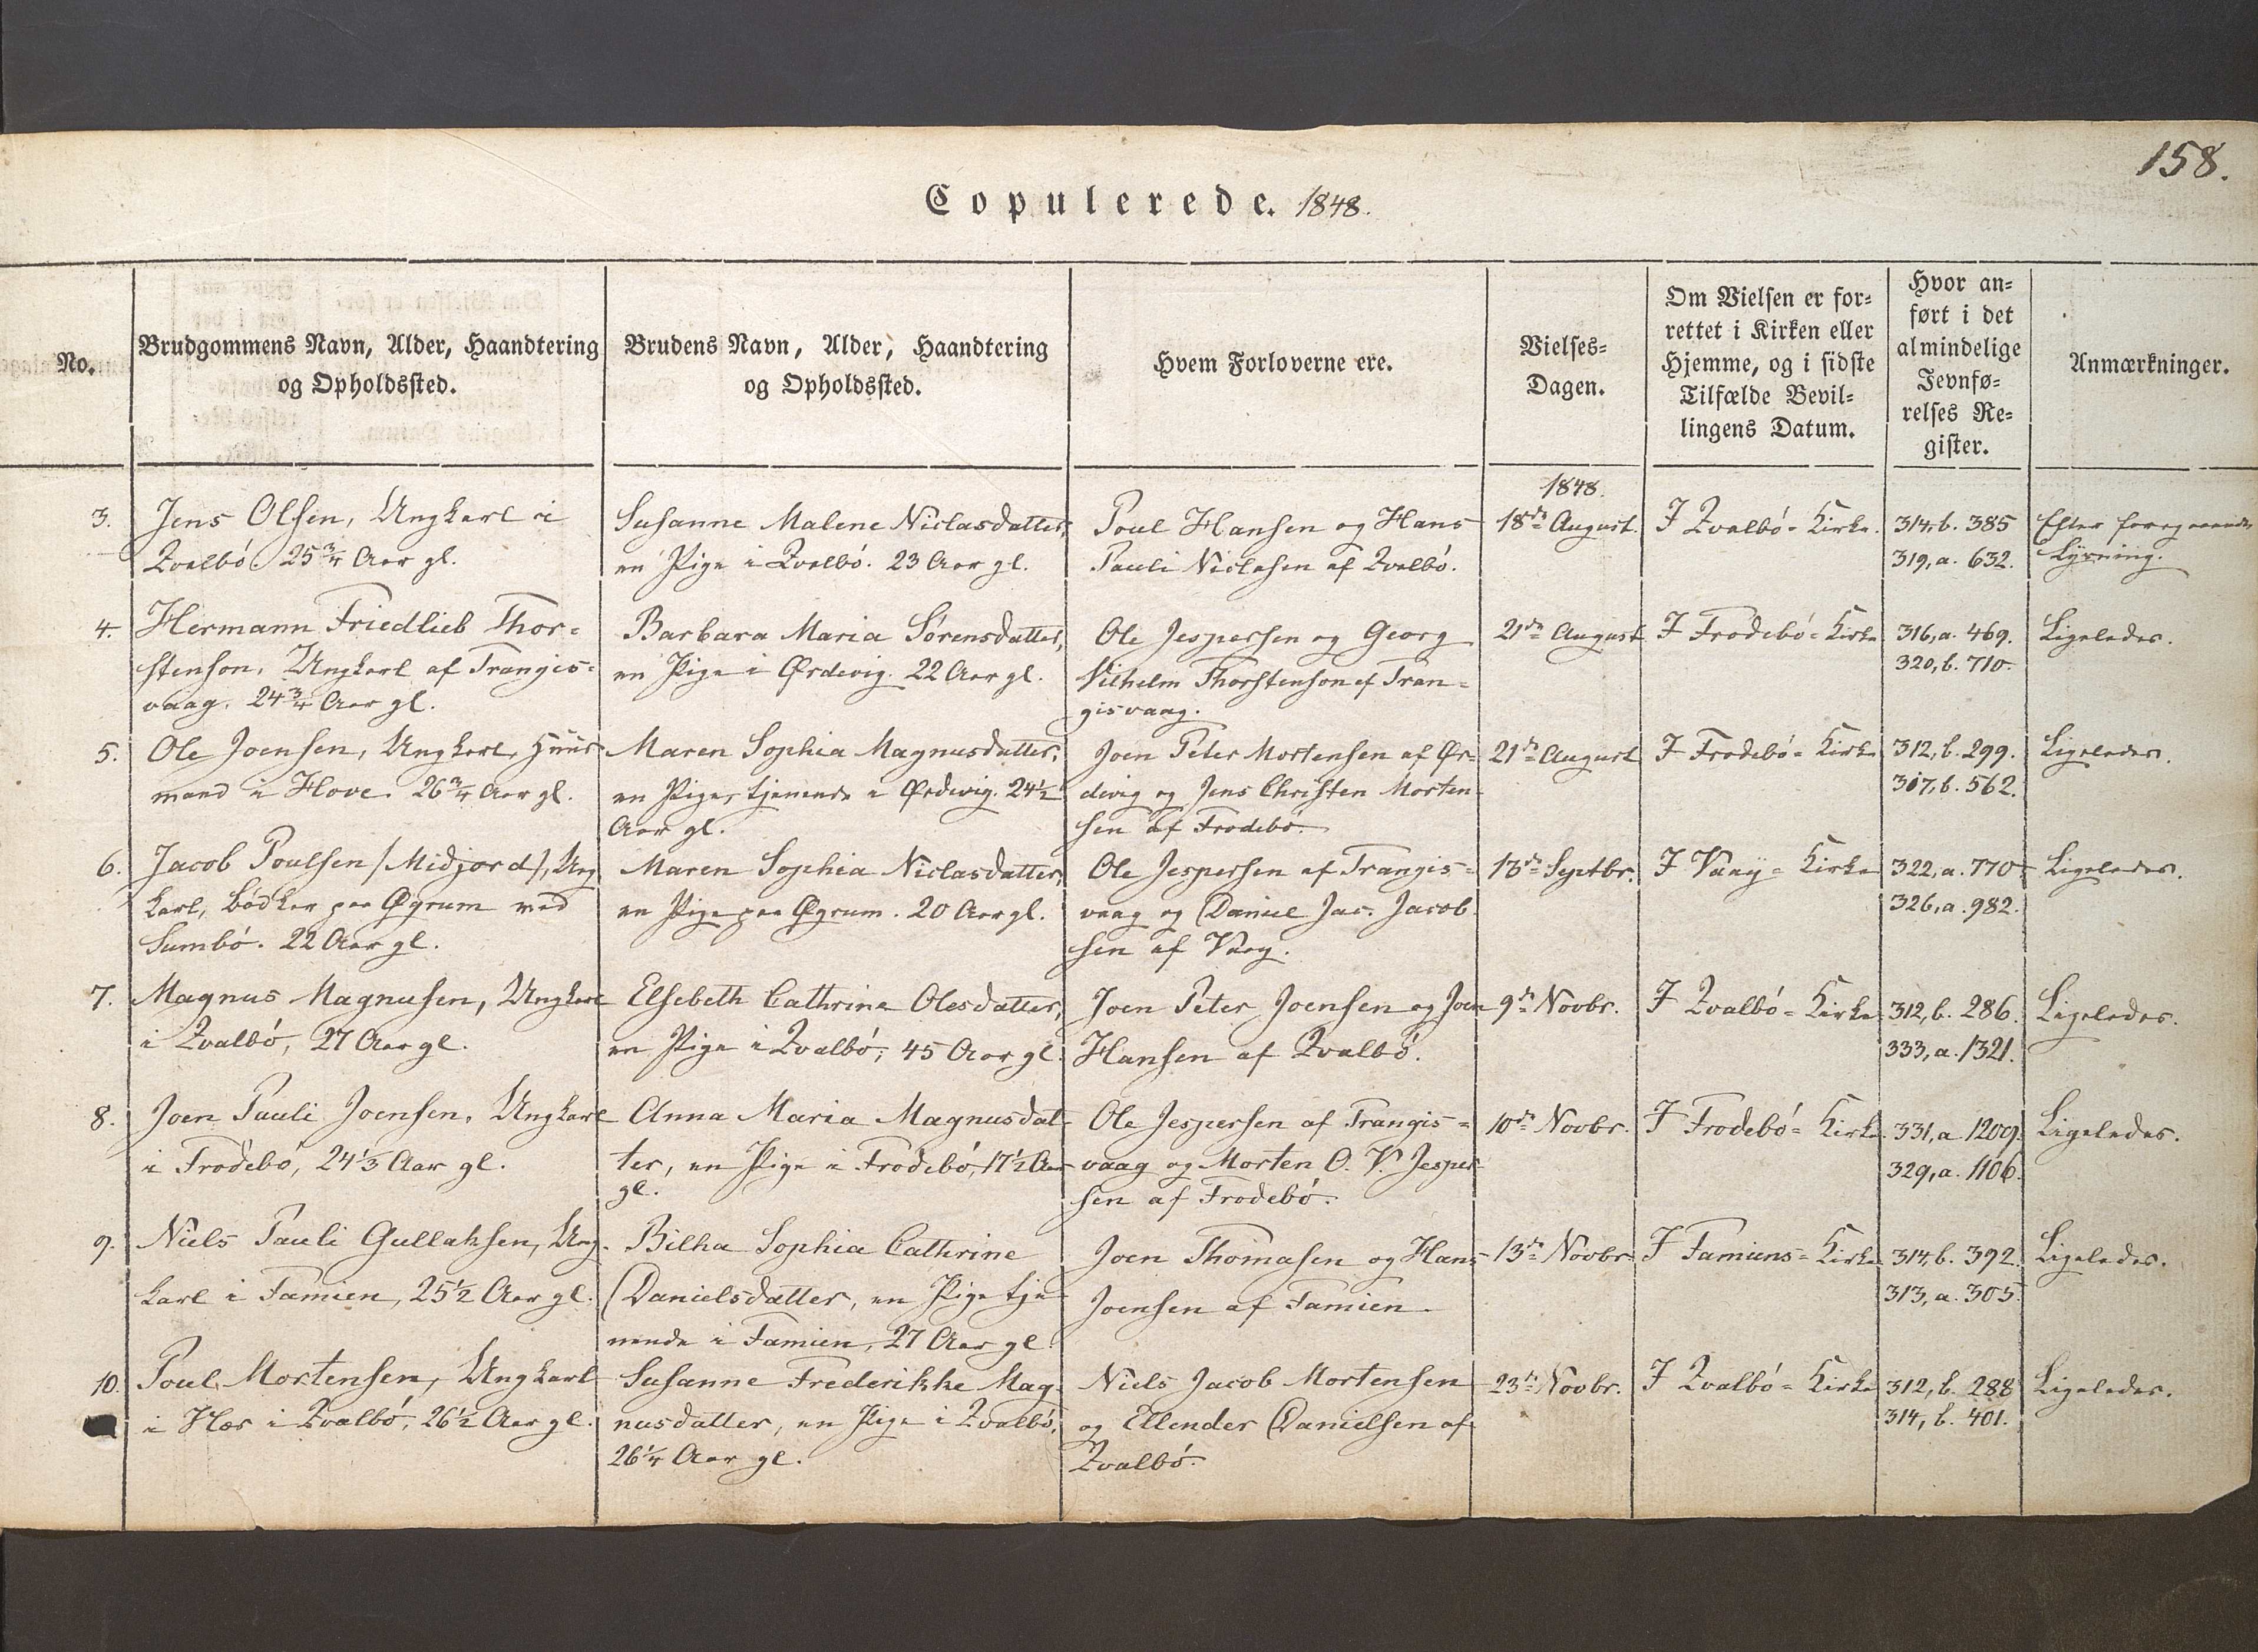 158.
Copulerede. 1848.
No.
Brudgommens Navn, Alder, Haandtering
og Opholdssted.
Brudens Navn, Alder, Haandtering
og Opholdssted.
Hvem Forloverne ere.
Vielses-
Dagen.
Om Vielsen er for-
rettet i Kirken eller
Hjemme, og i sidste
Tilfælde Bevil-
lingens Datum.
Hvor an-
ført i det
almindelige
Jevnfø-
relses Re-
gister.
Anmærkninger.
3.
Jens Olsen, Ungkarl i
Qvalbó. 25 3/4 Aar gl.
Susanne Malene Niclasdatter,
en Pige i Qvalbó. 23 Aar gl.
Poul Hansen og Hans
Pauli Niclasen af Qvalbó.
1848.
18de August.
I Qvalbó-Kirke.
314, b. 385
319, a. 632.
Efter foregaaende
Lysning.
4.
Hermann Friedlieb Thor-
stenson, Ungkarl af Trangis-
vaag. 24 3/4 Aar gl.
Barbara Maria Sørensdatter,
en Pige i Ørdevig. 22 Aar gl.
Ole Jespersen og Georg
Vilhelm Thorstenson af Tran-
gisvaag.
21de August
I Frodebó-Kirke
316, a. 469.
320, b. 710.
Ligeledes.
5.
Ole Joensen, Ungkarl, Huus-
mand i Hove. 26 3/4 Aar gl.
Maren Sophia Magnusdatter,
en Pige, tjenende i Ørdevig. 24 1/2
Aar gl.
Joen Peter Mortensen af Ør-
devig og Jens Christen Morten-
sen af Frodebó.
21de August
I Frodebó-Kirke
312, b. 299.
317, b. 562.
Ligeledes.
6.
Jacob Poulsen /Midjord/, Ung
karl, Bødker paa Øgrum ved
Sumbó. 22 Aar gl.
Maren Sophia Niclasdatter,
en Pige paa Øgrum. 20 Aar gl.
Ole Jespersen af Trangis-
vaag og Daniel Jac. Jacob
sen af Vaag.
13de Septbr.
I Vaag-Kirke
322, a. 770
326, a. 982.
Ligeledes.
7.
Magnus Magnusen, Ungkarl
i Qvalbó, 27 Aar gl.
Elsebeth Cathrine Olesdatter,
en Pige i Qvalbó, 45 Aar gl.
Joen Peter Joensen og Joen
Hansen af Qvalbó.
9de Novbr.
I Qvalbó-Kirke
312, b. 286.
333, a. 1321.
Ligeledes.
8.
Joen Pauli Joensen, Ungkarl
i Frodebó, 24 1/3 Aar gl.
Anna Maria Magnusdat-
ter, en Pige i Frodebó, 17 1/2 Aar
gl.
Ole Jespersen af Trangis-
vaag og Morten O. V. Jesper
sen af Frodebó.
10de Novbr.
I Frodebó-Kirke.
331, a 1209.
329, a. 1106.
Ligeledes.
9.
Niels Pauli Gullaksen, Ung-
karl i Famien, 25 1/2 Aar gl.
Bilha Sophia Cathrine
Danielsdatter, en Pige tje
nende i Famien, 27 Aar gl
Joen Thomasen og Hans
Joensen af Famien.
13de Novbr.
I Famiens-Kirke
314, b. 392.
313, a. 305.
Ligeledes.
10.
Poul Mortensen, Ungkarl
i Hør i Qvalbó, 26 1/2 Aar gl.
Susanne Frederikke Mag-
nusdatter, en Pige i Qvalbó,
26 1/4 Aar gl.
Niels Jacob Mortensen
og Ellender Danielsen af
Qvalbó.
23de Novbr.
I Qvalbó-Kirke
312, b. 288
314, b. 401.
Ligeledes.